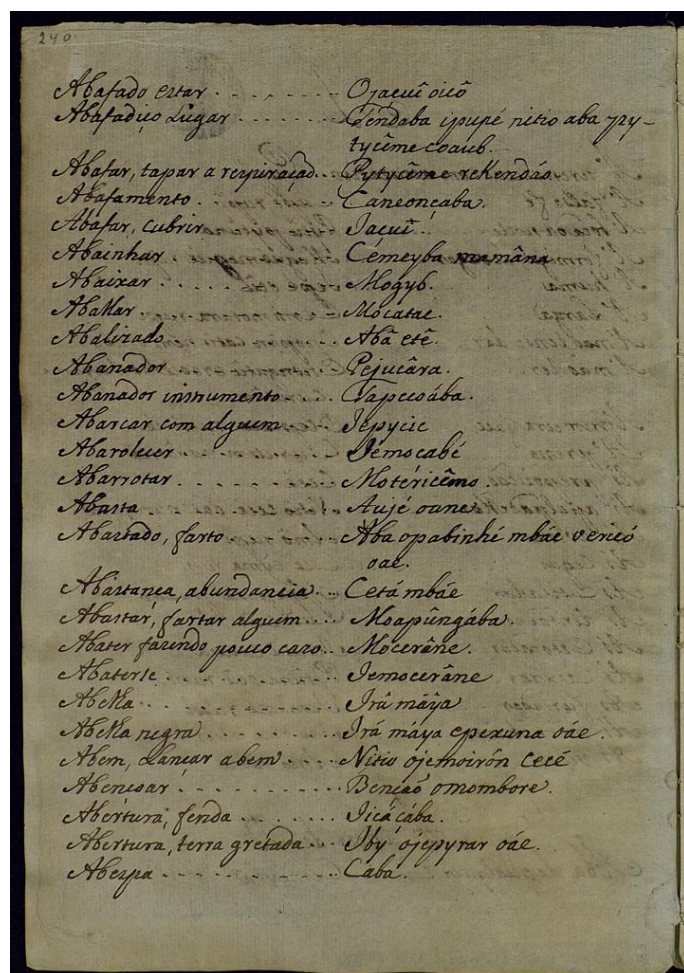 240.
Abafado estar - - - - - - - - Ojacuî oicô
Abafadiço Lugar - - - - - - - Tendaba ipupé nitio aba ypy-
tycême coaub.
Abafar, tapar a respiração - - Pytycême reKendáo.
Abafamento - - - - - - - - Caneonçaba.
Abafar, cubrir - - - - - - - Jacuî.
Abainhar - - - - - - - - Cémeyba mamâna
Abaixar - - - - - - - - Mogyb.
Abalar - - - - - - - - Mócatac.
Abalizado - - - - - - - - Abâ etê.
Abanador - - - - - - - - Pejucâra.
Abanador instrumento - - - - Tapecoába.
Abarcar com alguem - - - - Jepycic
Abarolecer - - - - - - - - Jemocabé
Abarrotar - - - - - - - - Motéricêmo.
Abasta - - - - - - - - Aujé oane.
Abastado, farto - - - - - - Aba opabinhé mbáe vericó
oae.
Abástança, abundancia - - - Cetá mbáe
Abastar, fartar alguem - - - Moapûngába.
Abater fazendo pouco cazo - - Mócerâne.
Abaterse - - - - - - - - Jemocerâne
Abelha - - - - - - - - Irâ máỹa
Abelha negra - - - - - - - Irá máya cpexuna oáe.
Abem, Lançar abem - - - - Nitio ojemoirón cecé
Abençoar - - - - - - - - Bençaõ omombore.
Abértura, fenda - - - - - - Jicáçába.
Abertura, terra gretada - - - Iby ojepyrar oáe.
Abespa - - - - - - - - Caba.